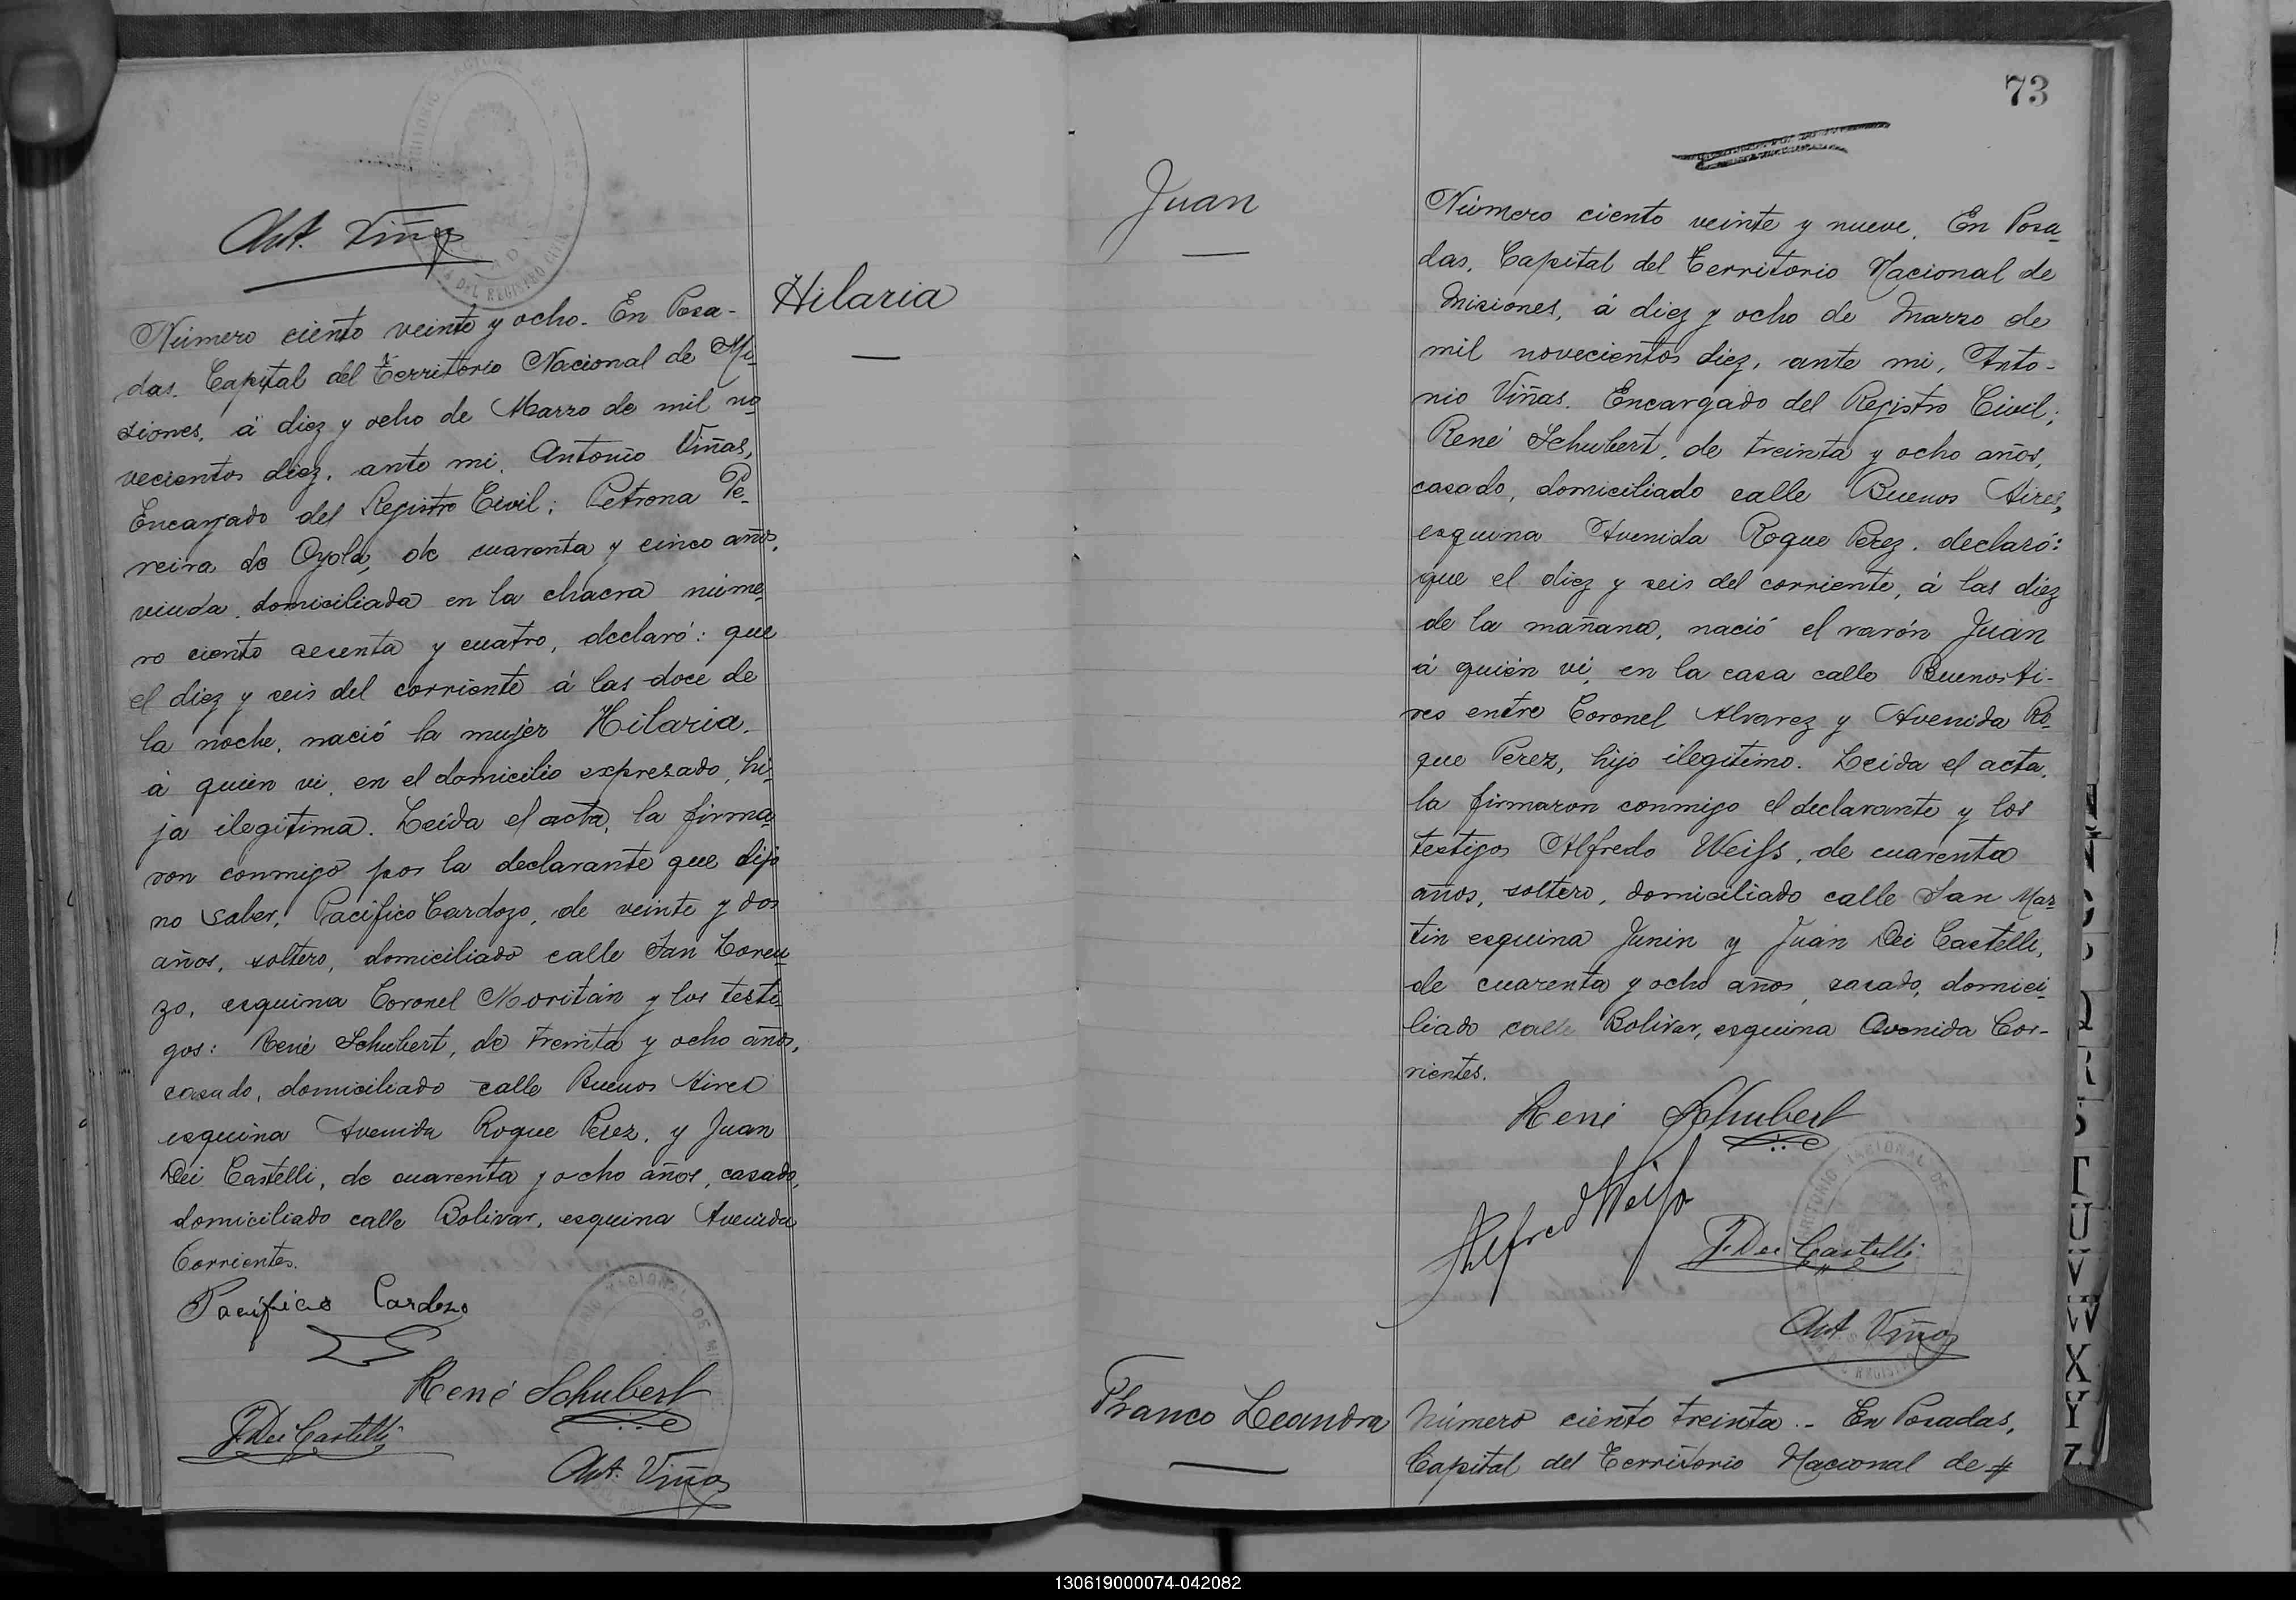 Ant. Viñas
Hilaria
Número ciento veinte y ocho. En Posa-
das. Capital del Territorio Nacional de Mi-
siones, á diez y ocho de Marzo de mil no-
vecientos diez, ante mi, Antonio Viñas,
Encargado del Registro Civil; Petrona Pe-
reira de Oyola, de cuarenta y cinco años,
viuda, domiciliada en la chacra núme-
ro ciento sesenta y cuatro, declaró: que
el diez y seis del corriente á las doce de
la noche, nació la mujer Hilaria
á quién vi, en el domicilio expresado, hi-
ja ilegitima. Leída el acta, la firma-
ron conmigo por la declarante que dijo
no saber, Pacífico Cardozo, de veinte y dos
años, soltero, domiciliado calle San Loren-
zo, esquina Coronel Moritán y los testi-
gos: René Schubert, de treinta y ocho años,
casado, domiciliado calle Buenos Aires
esquina Avenida Roque Perez, y Juan
Dei Castelli, de cuarenta y ocho años, casado,
domiciliado calle Bolivar, esquina Avenida
Corrientes.
Pacifico Cardozo
René Schubert
J. Dei Castelli
Ant. Viñas
73
Juan
Número ciento veinte y nueve. En Posa-
das, Capital del Territorio Nacional de
Misiones, á diez y ocho de Marzo de
mil novecientos diez, ante mi, Anto-
nio Viñas. Encargado del Registro Civil;
René Schubert, de treinta y ocho años,
casado, domiciliado calle Buenos Aires,
esquina Avenida Roque Perez, declaró:
que el diez y seis del corriente, á las diez
de la mañana, nació el varón Juan
á quién vi, en la casa calle Buenos Ai-
res entre Coronel Alvarez y Avenida Ro-
que Perez, hijo ilegitimo. Leída el acta,
la firmaron conmigo el declarante y los
testigos Alfredo Weifs, de cuarenta
años, soltero, domiciliado calle San Mar-
tin esquina Junin y Juan Dei Castelli,
de cuarenta y ocho años, casado, domici-
liado calle Bolivar, esquina Avenida Cor-
rientes.
René Schubert
Alfredo Weifs
J. Dei Castelli
Ant. Viñas
Franco Leandra
Número ciento treinta.- En Posadas,
Capital del Territorio Nacional de #
Q
R
S
T
U
V
W
X
Y
Z
130619000074-042082